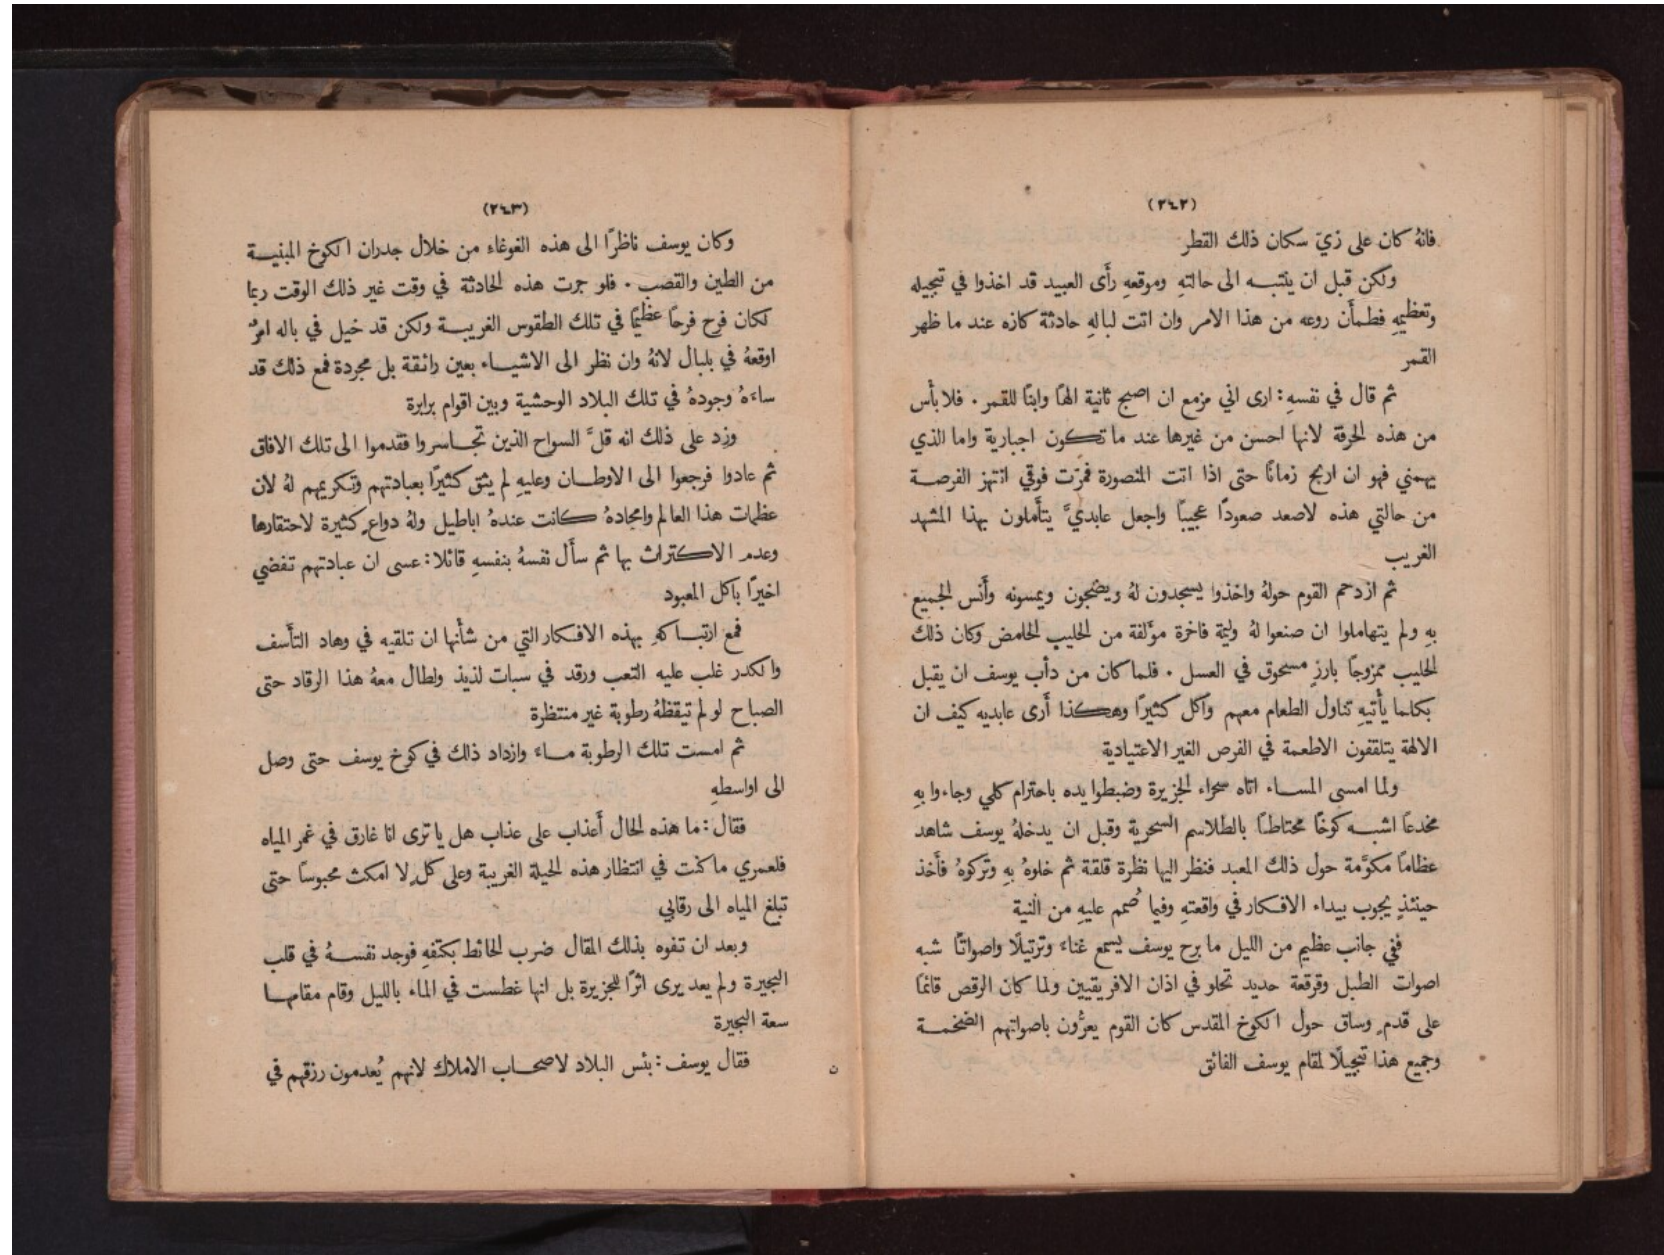 (٢٤٢)
فانهُ كان على زيّ سكان ذلك القطر
ولكن قبل ان ينتبه الى حالتهِ وموقعهِ رأَى العبيد قد اخذوا في تبجيله
وتعظيمهِ فطمأَن روعه من هذا الامر وان اتت لبالهِ حادثة كازه عند ما ظهر
القمر
ثم قال في نفسهِ: ارى اني مزمع ان اصبح ثانية الهًا وابنًا للقمر . فلا بأس
من هذه الحرفة لانها احسن من غيرها عند ما تكون اجبارية واما الذي
يهمني فهو ان اربح زمانًا حتى اذا اتت المنصورة فمرَّت فوقي انتهز الفرصة
من حالتي هذه لاصعد صعودًا عجيبًا واجعل عابديَّ يتأَملون بهذا المشهد
الغريب
ثم ازدحم القوم حولهُ واخذوا يسجدون لهُ ويضجون ويمسونه وأَنس الجميع
بهِ ولم يتهاملوا ان صنعوا لهُ وليمة فاخرة مؤَلفة من الحليب الحامض وكان ذلك
الحليب ممزوجًا بارزٍ مسحوق في العسل . فلما كان من دأب يوسف ان يقبل
بكلما يأْتيهِ تناول الطعام معهم واكل كثيرًا وهكذا أَرى عابديه كيف ان
الالهة يتلقفون الاطعمة في الفرص الغير الاعتيادية
ولما امسى المساء اتاه سحراء الجزيرة وضبطوا يده باحترام كلي وجاءوا بهِ
مخدعًا اشبه كوخًا محتاطًا بالطلاسم السحرية وقبل ان يدخلهُ يوسف شاهد
عظامًا مكوَّمة حول ذلك المعبد فنظر اليها نظرة قلقة ثم خلوهُ بهِ وتركوهُ فأَخذ
حينئذٍ يجوب بيداء الافكار في واقعتهِ وفيما صُمم عليهِ من النية
ففي جانب عظيم من الليل ما برح يوسف يسمع غناءً وترتيلًا واصواتًا شبه
اصوات الطبل وقرقعة حديد تحلو في اذان الافريقيين ولما كان الرقص قائمًا
على قدمٍ وساق حول الكوخ المقدس كان القوم يعرُّون باصواتهم الضخمة
وجميع هذا تبجيلًا لمقام يوسف الفائق
(٢٤٣)
وكان يوسف ناظرًا الى هذه الغوغاء من خلال جدران الكوخ المبنية
من الطين والقصب . فلو جرت هذه الحادثة في وقت غير ذلك الوقت ربما
لكان فرح فرحًا عظيمًا في تلك الطقوس الغريبة ولكن قد خيل في باله امرٌ
اوقعهُ في بلبال لانهُ وان نظر الى الاشياء بعين رائقة بل مجردة فمع ذلك قد
ساءَهُ وجودهُ في تلك البلاد الوحشية وبين اقوام برابرة
وزِد على ذلك انه قلَّ السواح الذين تجاسروا فقدموا الى تلك الافاق
ثم عادوا فرجعوا الى الاوطان وعليهِ لم يثق كثيرًا بعبادتهم وتكريمهم لهُ لان
عظمات هذا العالم وامجادهُ كانت عندهُ اباطيل ولهُ دواعٍ كثيرة لاحتقارها
وعدم الاكتراث بها ثم سأَل نفسهُ بنفسهِ قائلا: عسى ان عبادتهم تفضي
اخيرًا باكل المعبود
فمع ارتباكهِ بهذه الافكار التي من شأْنها ان تلقيه في وهاد التأَسف
والكدر غلب عليه التعب ورقد في سبات لذيذ ولطال معهُ هذا الرقاد حتى
الصباح لو لم تيقظهُ رطوبة غير منتظرة
ثم امست تلك الرطوبة ماءً وازداد ذلك في كوخ يوسف حتى وصل
الى اواسطهِ
فقال: ما هذه الحال أَعذاب على عذاب هل يا ترى انا غارق في غمر المياه
فلعمري ما كنت في انتظار هذه الحيلة الغريبة وعلى كلٍ لا امكث محبوسًا حتى
تبلغ المياه الى رقابي
وبعد ان تفوه بذلك المقال ضرب الحائط بكتفهِ فوجد نفسهُ في قلب
البحيرة ولم يعد يرى اثرًا للجزيرة بل انها غطست في الماء بالليل وقام مقامها
سعة البحيرة
فقال يوسف: بئس البلاد لاصحاب الاملاك لانهم يُعدمون رزقهم في